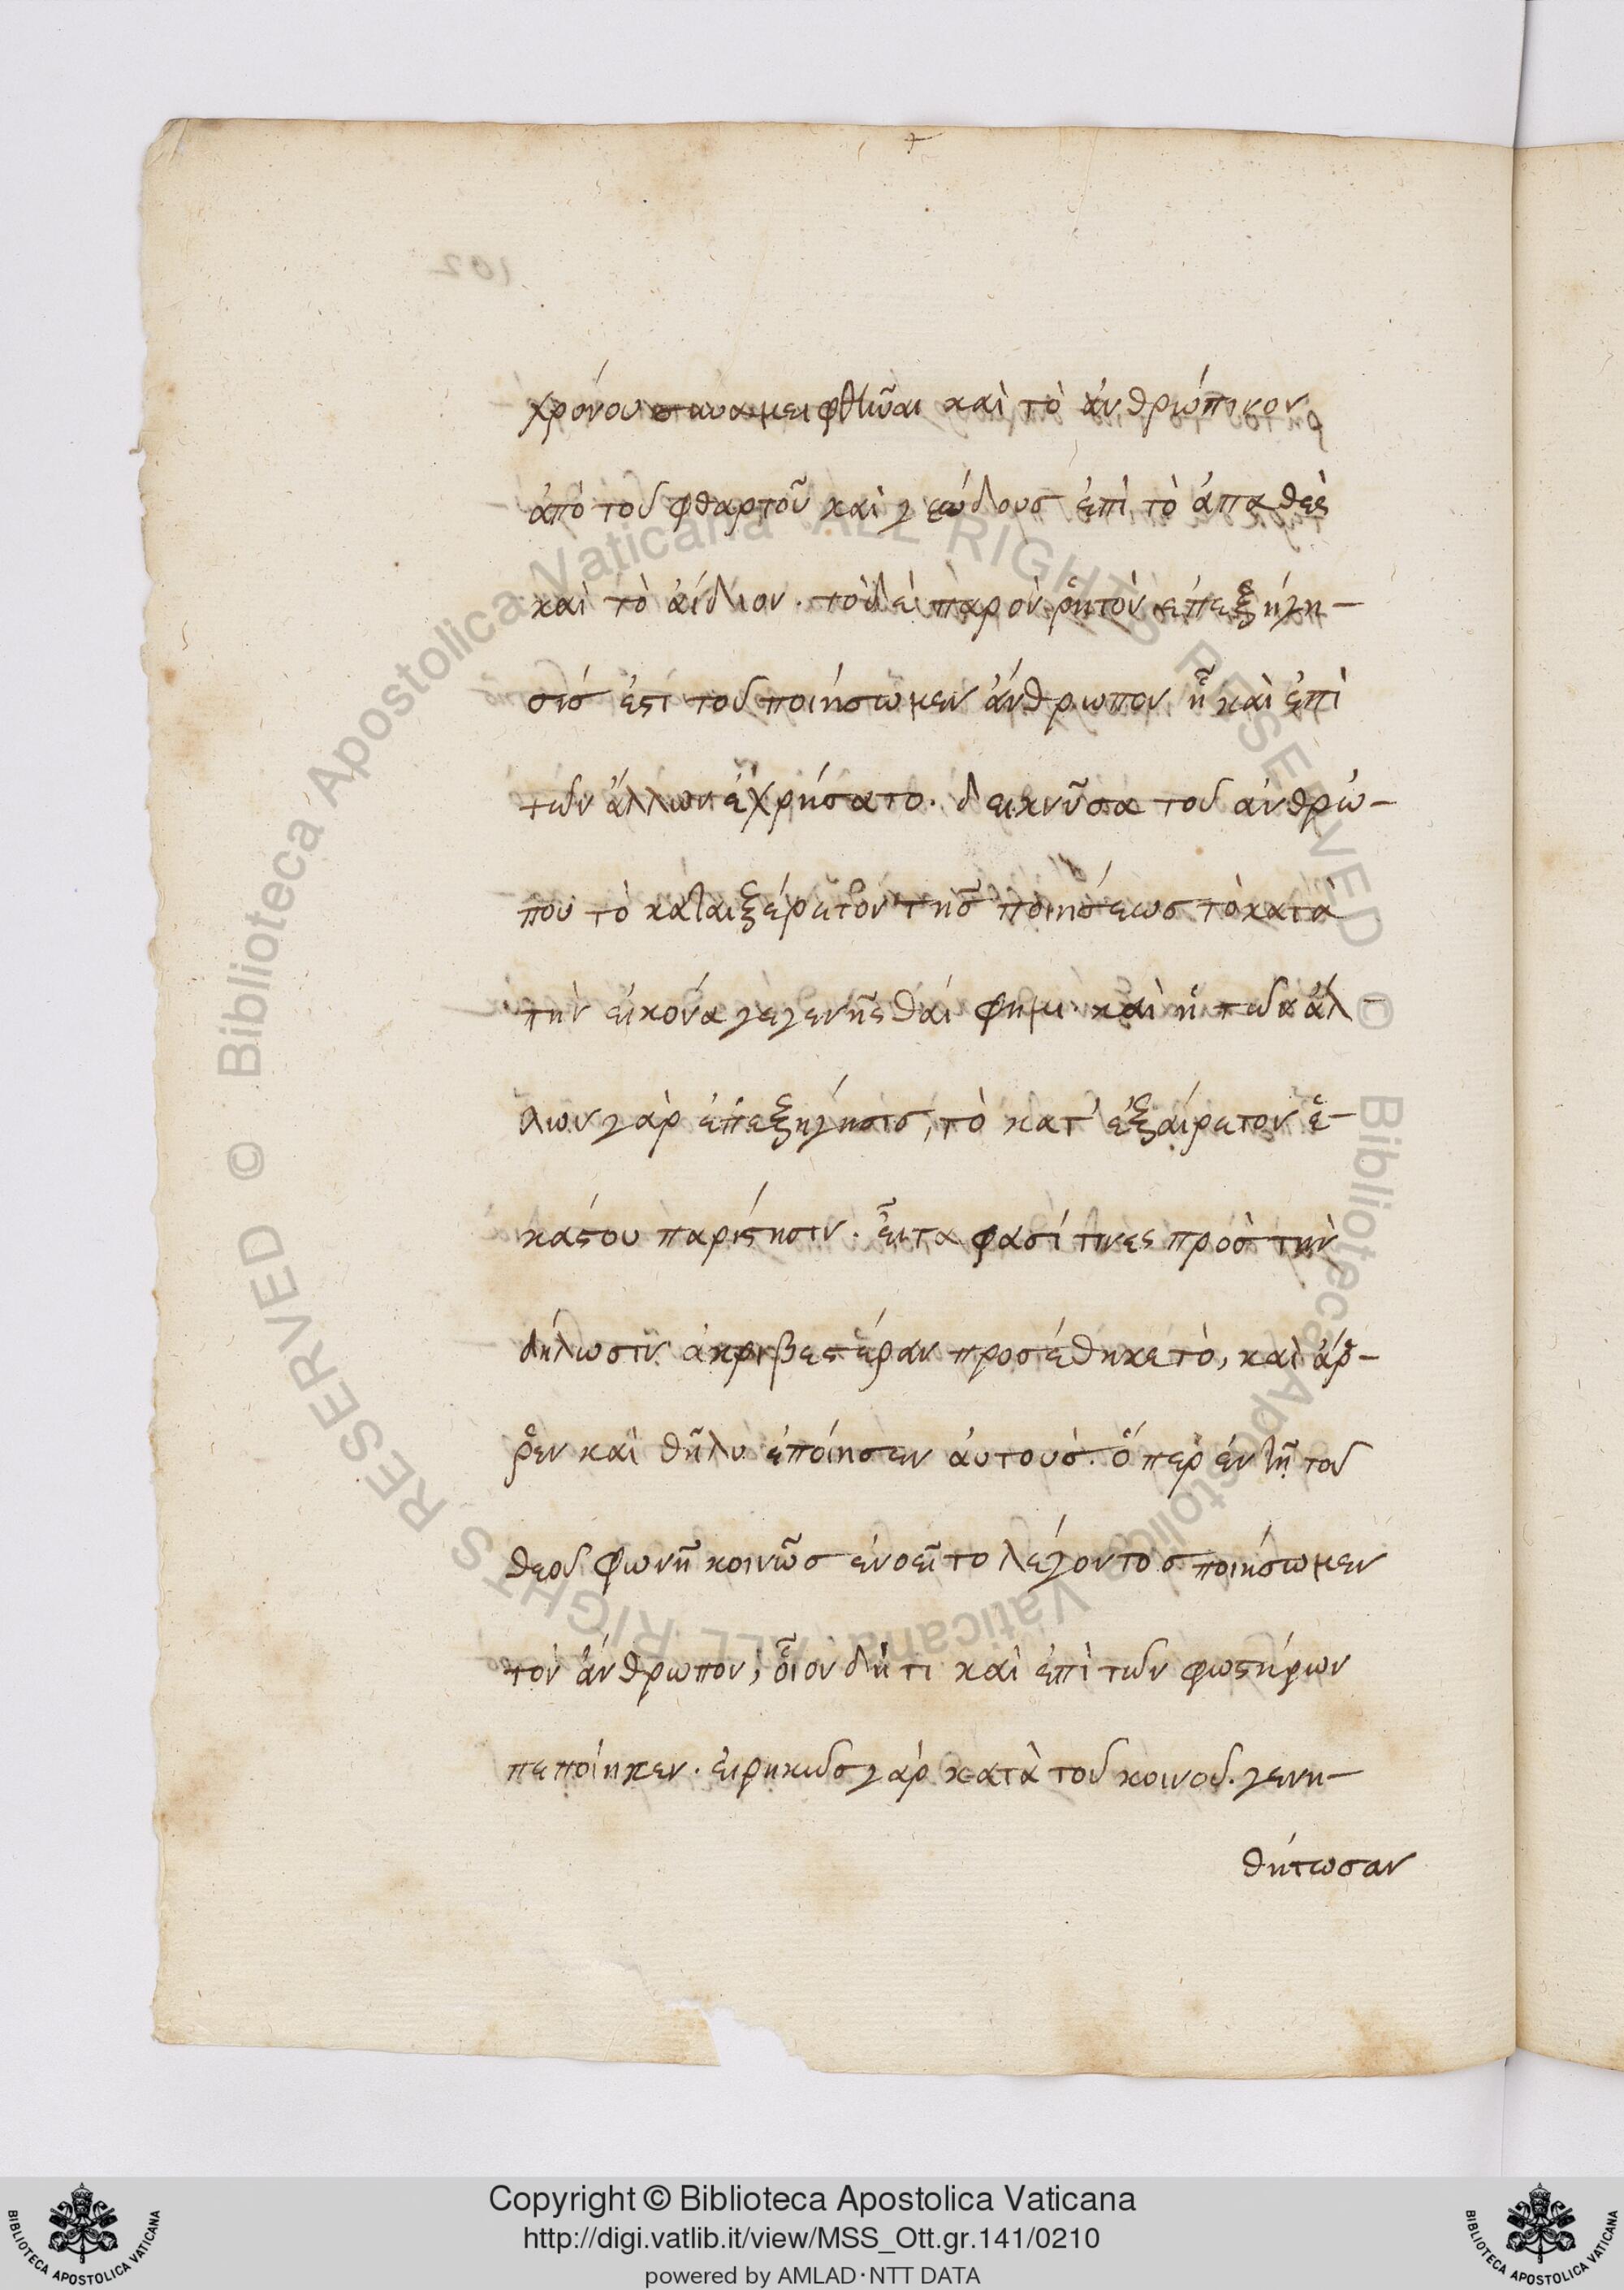 102
χρόνου συναμειφθῆναι καὶ τὸ ἀνθρώπινον
ἀπὸ τοῦ φθαρτοῦ καὶ γεώδους ἐπὶ τὸ ἀπαθὲς
καὶ τὸ ἀΐδιον. τὸ δὲ παρὸν ῥητὸν ἐπεξήγη-
σίς ἐστι τοῦ ποιήσωμεν ἄνθρωπον ᾗ καὶ ἐπὶ
τῶν ἄλλων ἐχρήσατο. δεικνῦσα τοῦ ἀνθρώ-
που τὸ καταιξέρετον τῆς ποιήσεως τὸ κατὰ
τὴν εἰκόνα γεγενῆσθαί φημι. καὶ ἡ τῶν ἄλ-
λων γὰρ ἐπεξήγησις, τὸ κατ' ἐξαίρετον ἑ-
κάστου παρίστησιν. εἶτα φασί τινες πρὸς τὴν
δήλωσιν ἀκριβεστέραν προσέθηκε τὸ, καὶ ἄρ-
ῥεν καὶ θῆλυ ἐποίησεν αὐτούς. ὅπερ ἐν τῇ τοῦ
θεοῦ φωνῇ κοινῶς ἐνοεῖτο λέγοντος ποιήσωμεν
τὸν ἄνθρωπον, οἷον δή τι καὶ ἐπὶ τῶν φωστήρων
πεποίηκεν. εἰρηκὼς γὰρ κατὰ τοῦ κοινοῦ. γενη-
θήτωσαν
© Biblioteca Apostolica Vaticana ALL RIGHTS RESERVED © Biblioteca Apostolica Vaticana ALL RIGHTS RESERVED
Copyright © Biblioteca Apostolica Vaticana
http://digi.vatlib.it/view/MSS_Ott.gr.141/0210
powered by AMLAD·NTT DATA
BIBLIOTECA APOSTOLICA VATICANA
BIBLIOTECA APOSTOLICA VATICANA